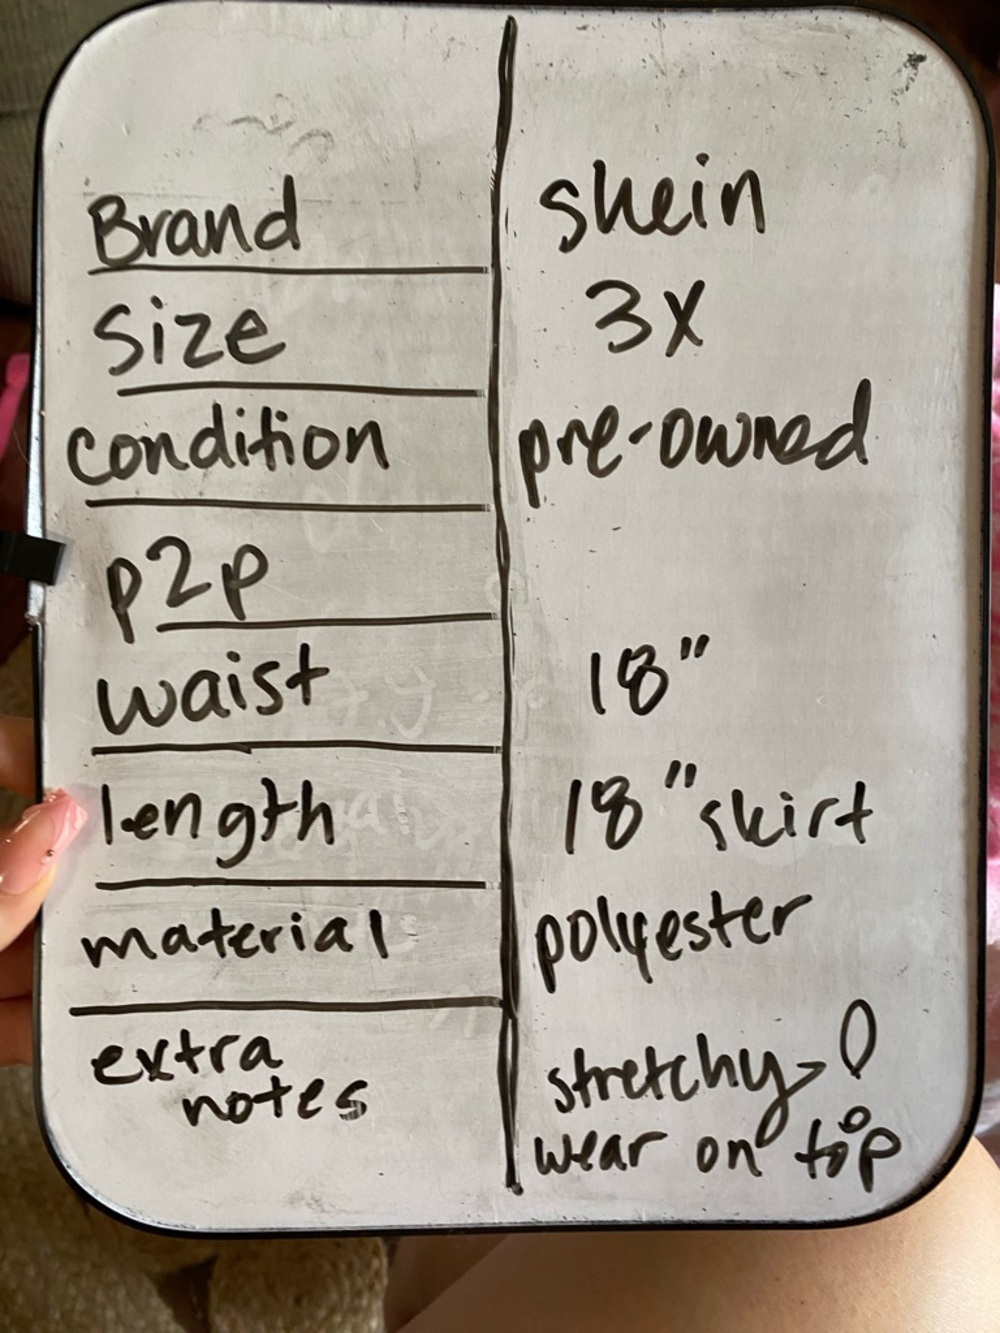 Brand shein
Size 3X
condition pre-owned
p2p
waist 18"
length 18" skirt
material polyester
extra stretchy-
notes wear on top